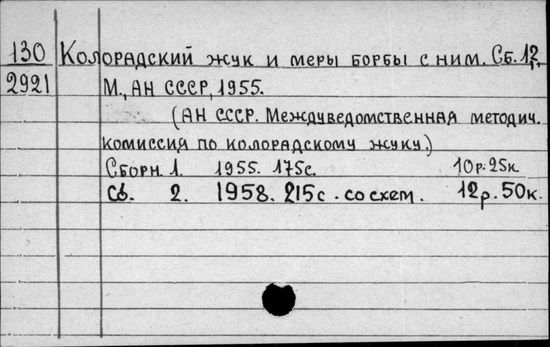 130 Колорадский жук и меры борбы с ним. Сб. 1,2.
2921 М., АН СССР, 1955.
(АН СССР. Междуведомственная методич.
комиссия по колорадскому жуку.)
Сборн. 1. 1955. 175с. 10р.25к
Сб. 2. 1958. 215с. со схем. 12р.50к.